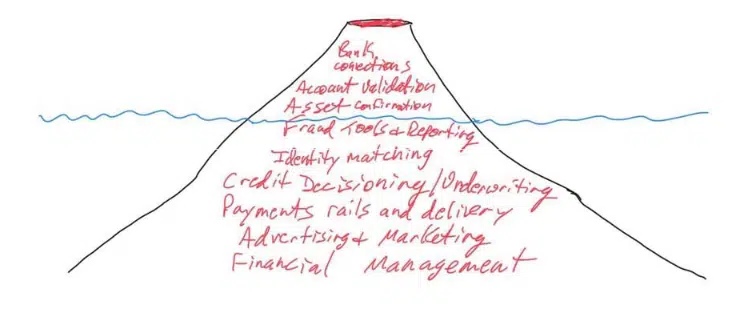 Bank
connections
Account Validation
Asset confirmation
Fraud Tools & Reporting
Identity matching
Credit Decisioning/Underwriting
Payments rails and delivery
Advertising & Marketing
Financial Management